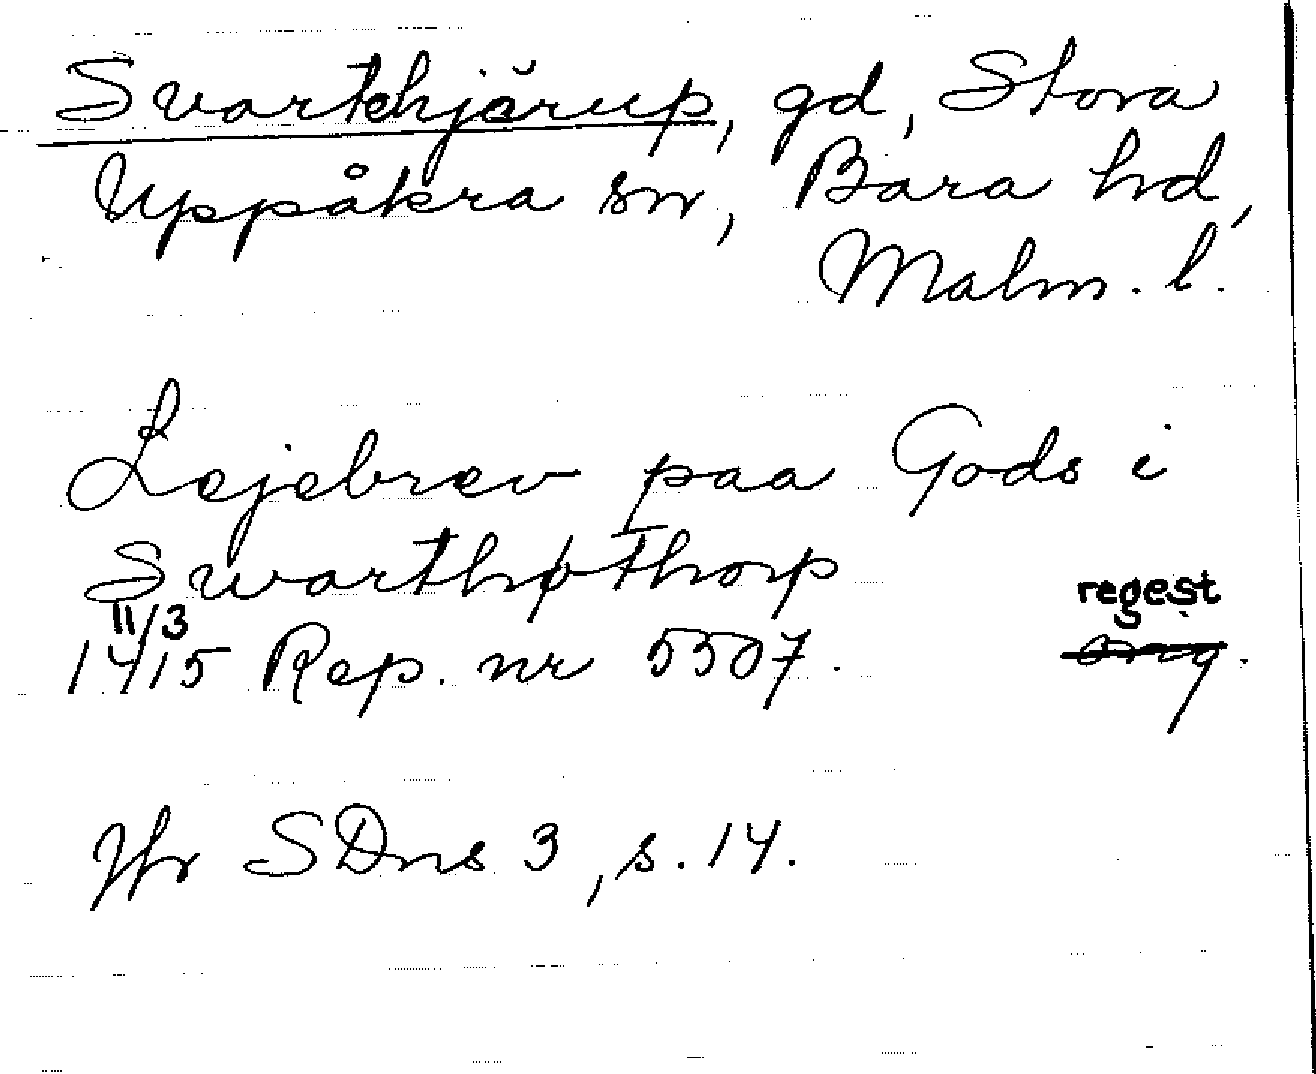 Svartehjärup, gd, Stora
Uppåkra sn, Bara hd,
Malm. l.
Lejebrev paa Gods i
Swarthøthorp
regest
11/3
1415 Rep. nr 5507.
Jfr SDns 3, s. 14.